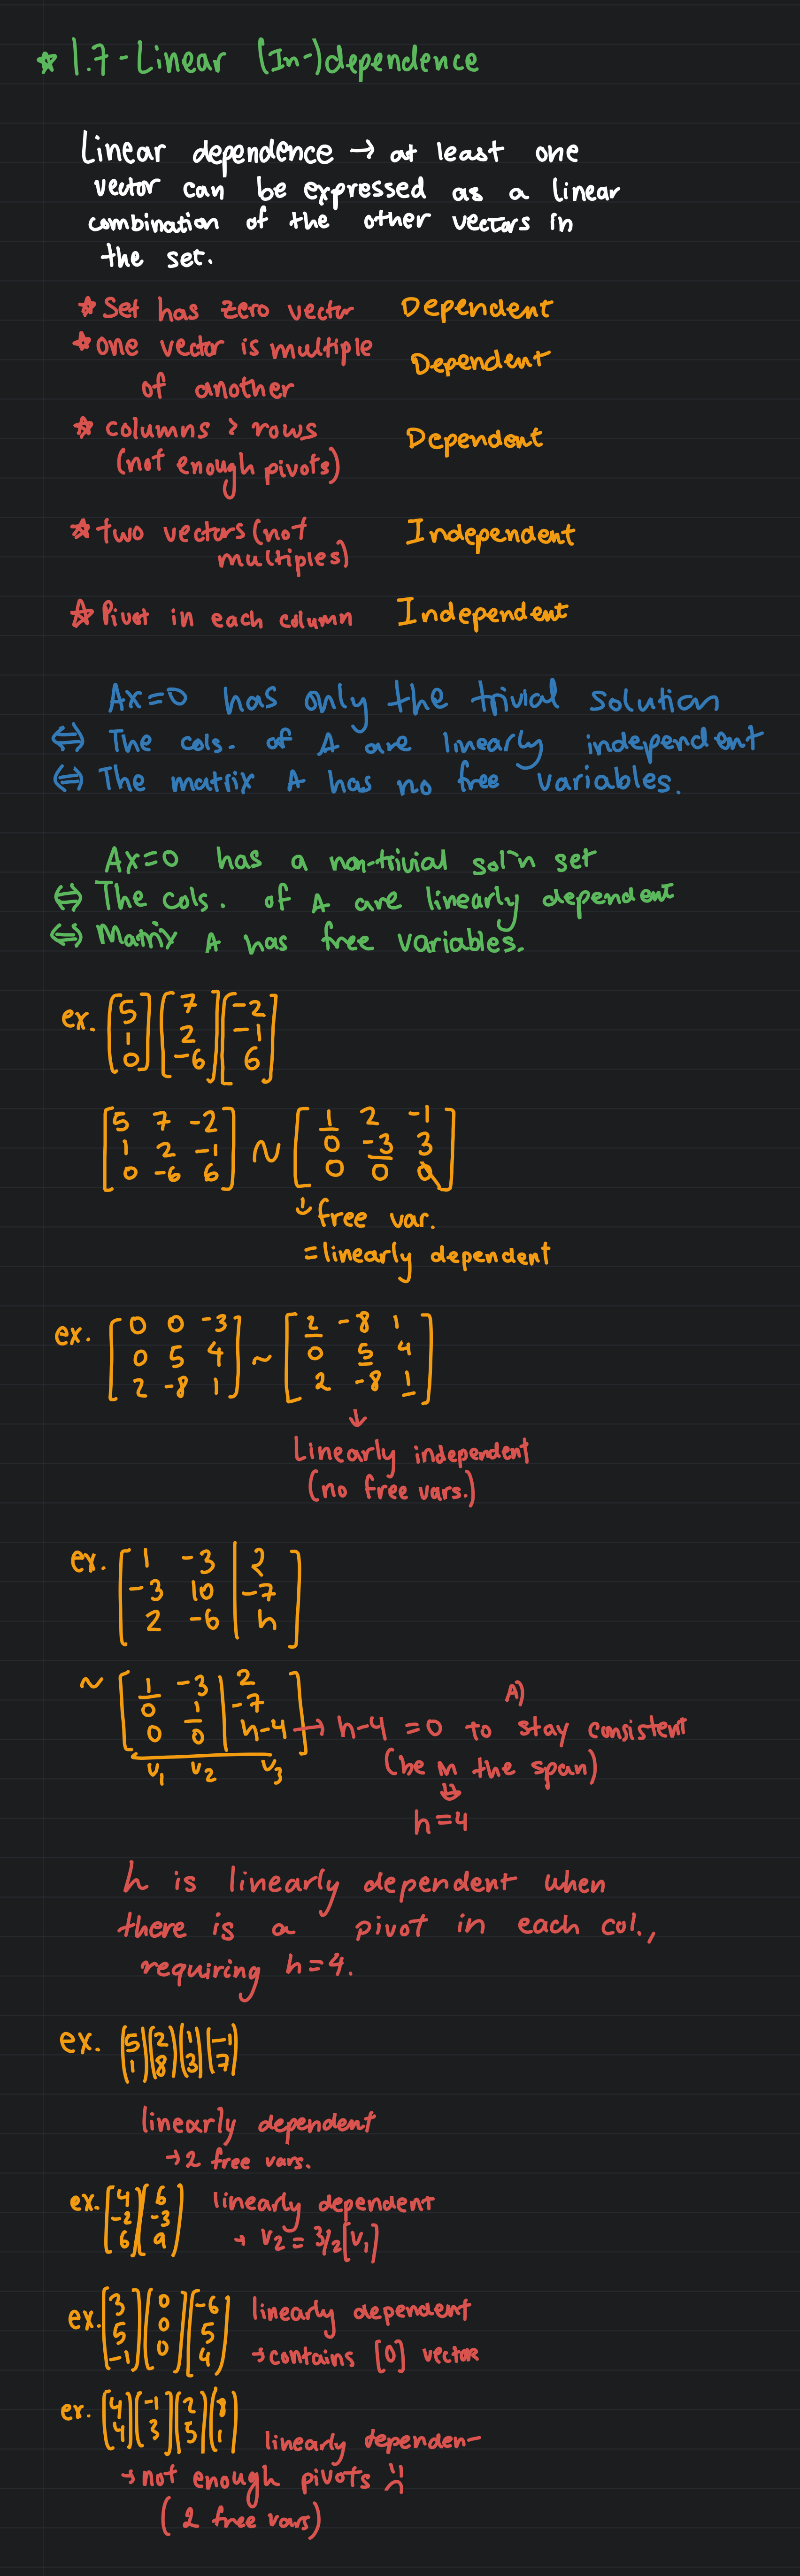 ☆ 1.7 - Linear (In-)dependence
Linear dependence → at least one
vector can be expressed as a linear
combination of the other vectors in
the set.
☆ Set has zero vector Dependent
☆ one vector is multiple
of another Dependent
☆ columns > rows
(not enough pivots) Dependent
☆ two vectors (not
multiples) Independent
☆ Pivot in each column Independent
Ax=0 has only the trivial solution
⇔ The cols. of A are linearly independent
⇔ The matrix A has no free variables.
Ax=0 has a non-trivial sol'n set
⇔ The cols. of A are linearly dependent
⇔ Matrix A has free variables.
ex. [5 1 0] [7 2 -6] [-2 -1 6]
[5 7 -2
1 2 -1
0 -6 6] ~ [1 2 -1
0 -3 3
0 0 0]
↓ free var.
= linearly dependent
ex. [0 0 -3
0 5 4
2 -8 1] ~ [2 -8 1
0 5 4
2 -8 1]
↓
Linearly independent
(no free vars.)
ex. [1 -3 | 2
-3 10 | -7
2 -6 | h]
~ [1 -3 | 2
0 1 | -7
0 0 | h-4]
v1 v2 v3
A)
→ h-4 = 0 to stay consistent
(be in the span)
⇓
h=4
h is linearly dependent when
there is a pivot in each col.,
requiring h=4.
ex. [5 1] [2 8] [1 3] [-1 7]
linearly dependent
→ 2 free vars.
ex. [4 -2 6] [6 -3 9] linearly dependent
→ v2 = 3/2[v1]
ex. [3 5 -1] [0 0 0] [-6 5 4] linearly dependent
→ contains [0] vector
ex. [4 4] [-1 3] [2 5] [8 1]
linearly dependen-
→ not enough pivots :(
(2 free vars)